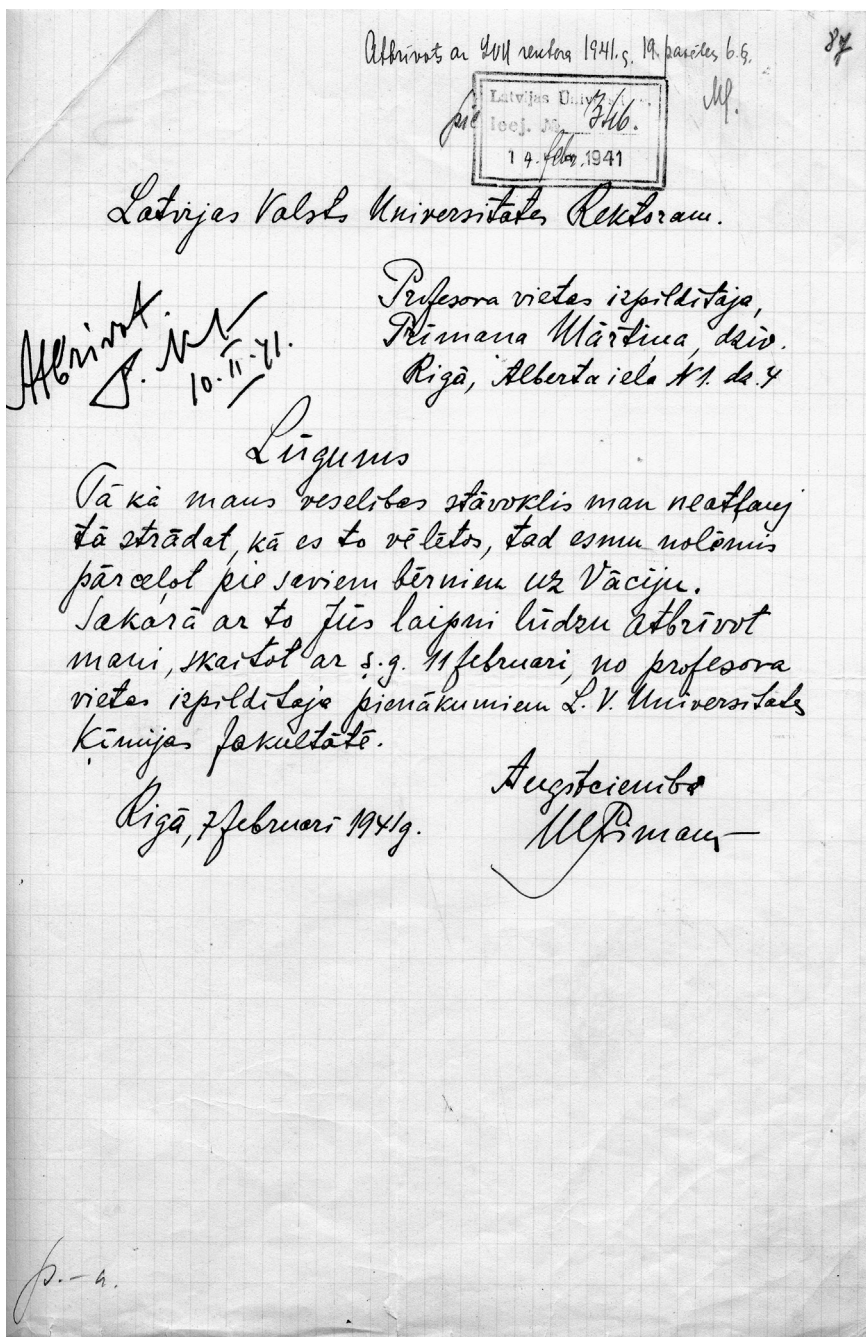 Atbrīvots ar LVU rektora 1941.g. 19. pavēles 6.§.
87
M.
Latvijas Univ
pie Ieej. № 346.
14. febr. 1941
Latvijas Valsts Universitātes Rektoram.
Profesora vietas izpildītāja,
Prīmaņa Mārtiņa, dzīv.
Rigā, Alberta iela №1. dz. 4
Atbrīvot.
10.II.41.
Lūgums
Tā kā mans veselības stāvoklis man neatļauj
tā strādāt, kā es to vēlētos, tad esmu nolēmis
pārceļot pie saviem bērniem uz Vāciju.
Sakarā ar to Jūs laipni lūdzu atbrīvot
mani, skaitot ar š.g. 11 februari, no profesora
vietas izpildītāja pienākumiem L.V. Universitātes
Ķīmijas fakultātē.
Augstcienībā
Rigā, 7 februarī 1941g.
MPrīmans
p.-a.